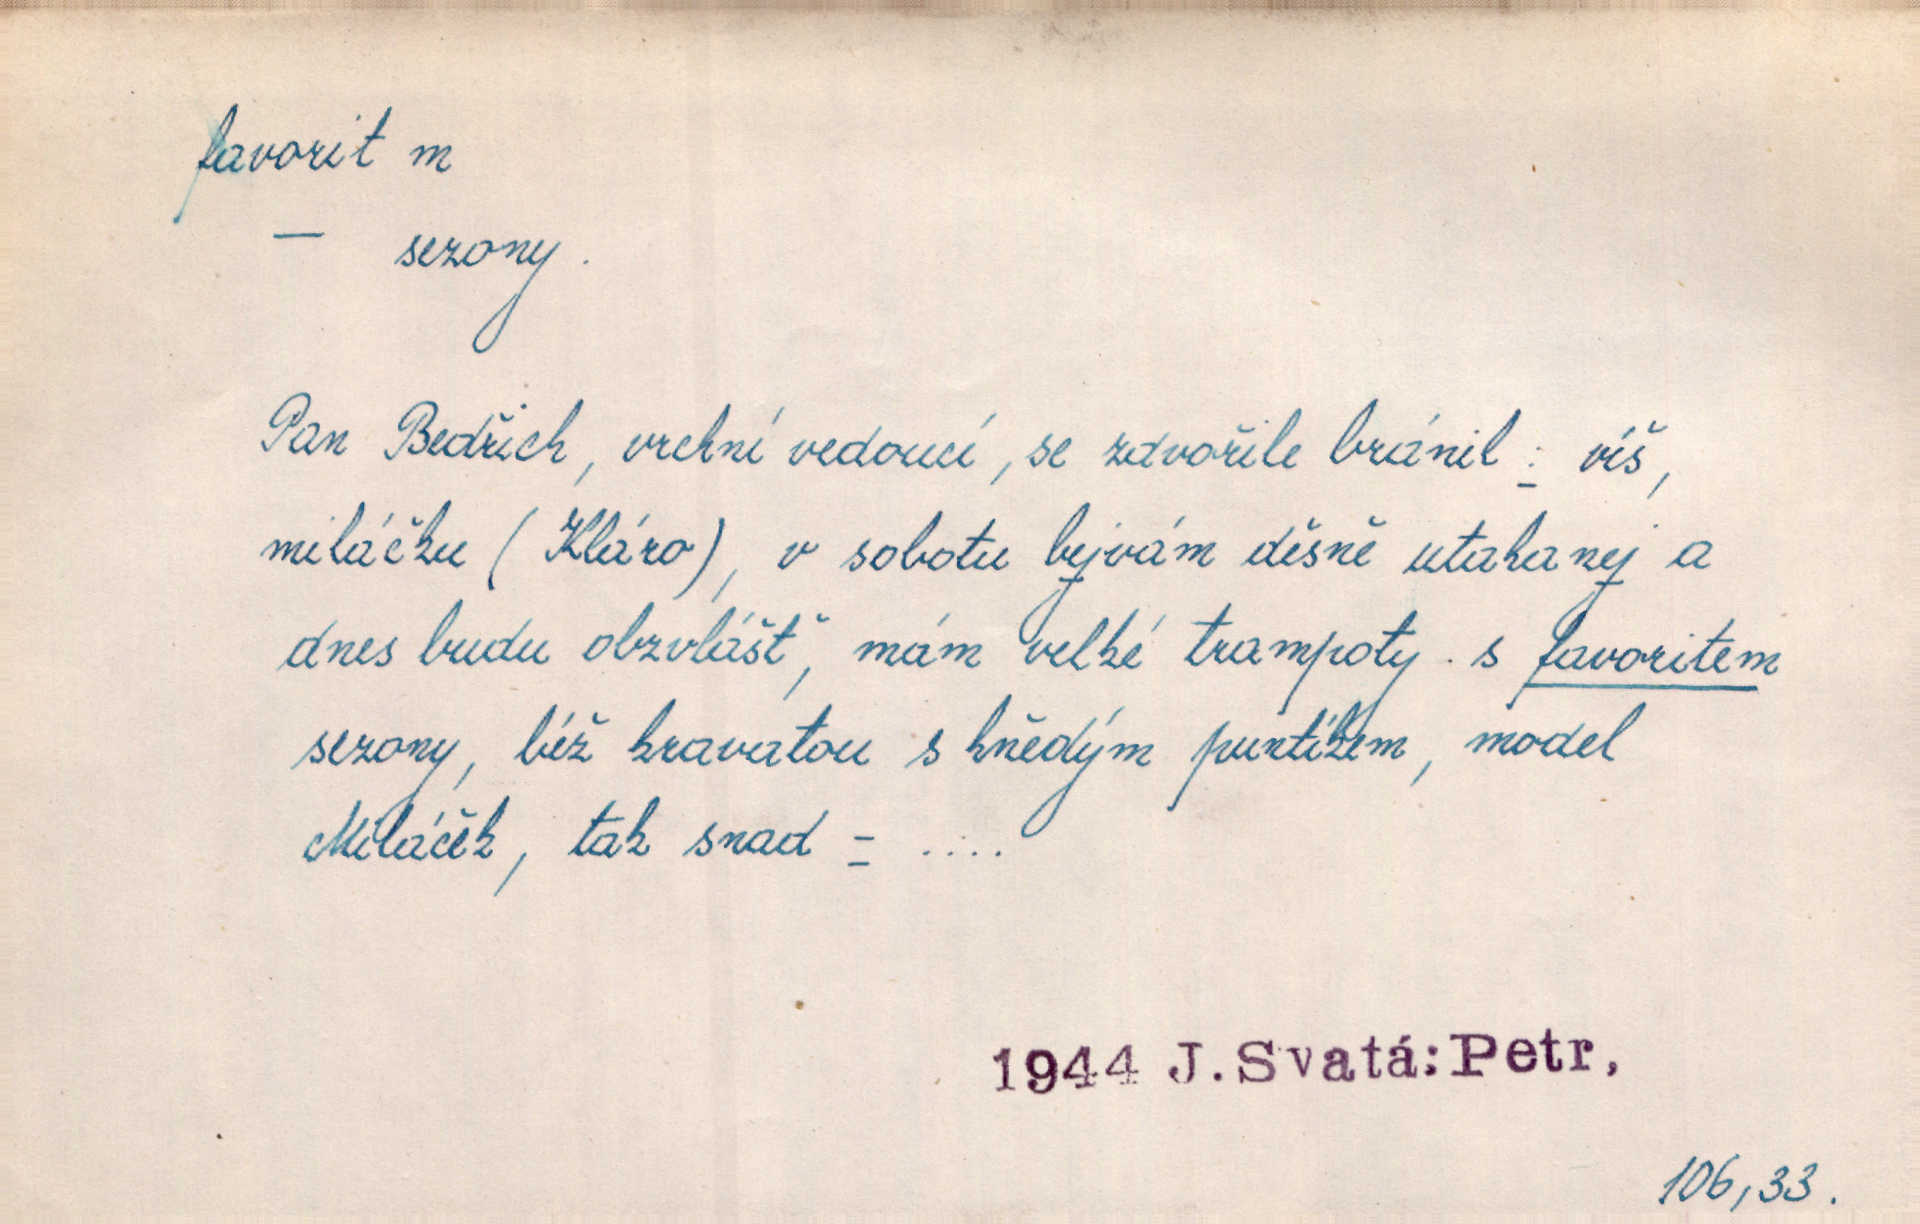 favorit m
— sezony.
Pan Bedřich, vrchní vedoucí, se zdvořile bránil : víš,
miláčku (Kláro), v sobotu bejvám děsně utahanej a
dnes budu obzvlášť, mám velké trampoty s favoritem
sezony, béž kravatou s hnědým puntíkem, model
Miláček, tak snad – ....
1944 J. Svatá: Petr,
106,33.